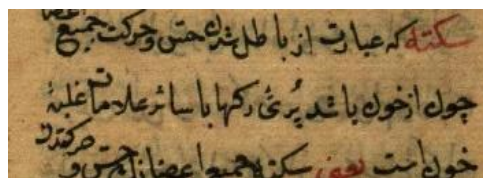 سکته که عبارت از باطل شدن حس و حرکت جمیع اعضا
چون از خون باشد پُرئ رکها با سائر علامات غلبهٔ
خون است یعنی سکته جمیع اعضا از حس و حرکت